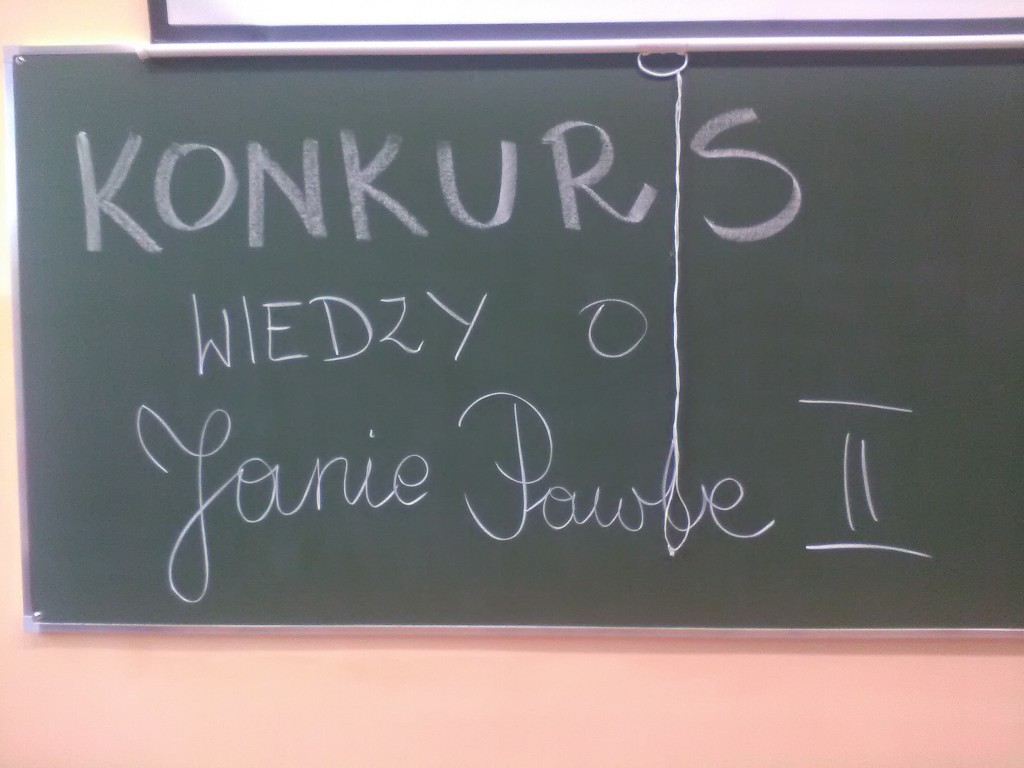 KONKURS
WIEDZY O
Janie Pawle II